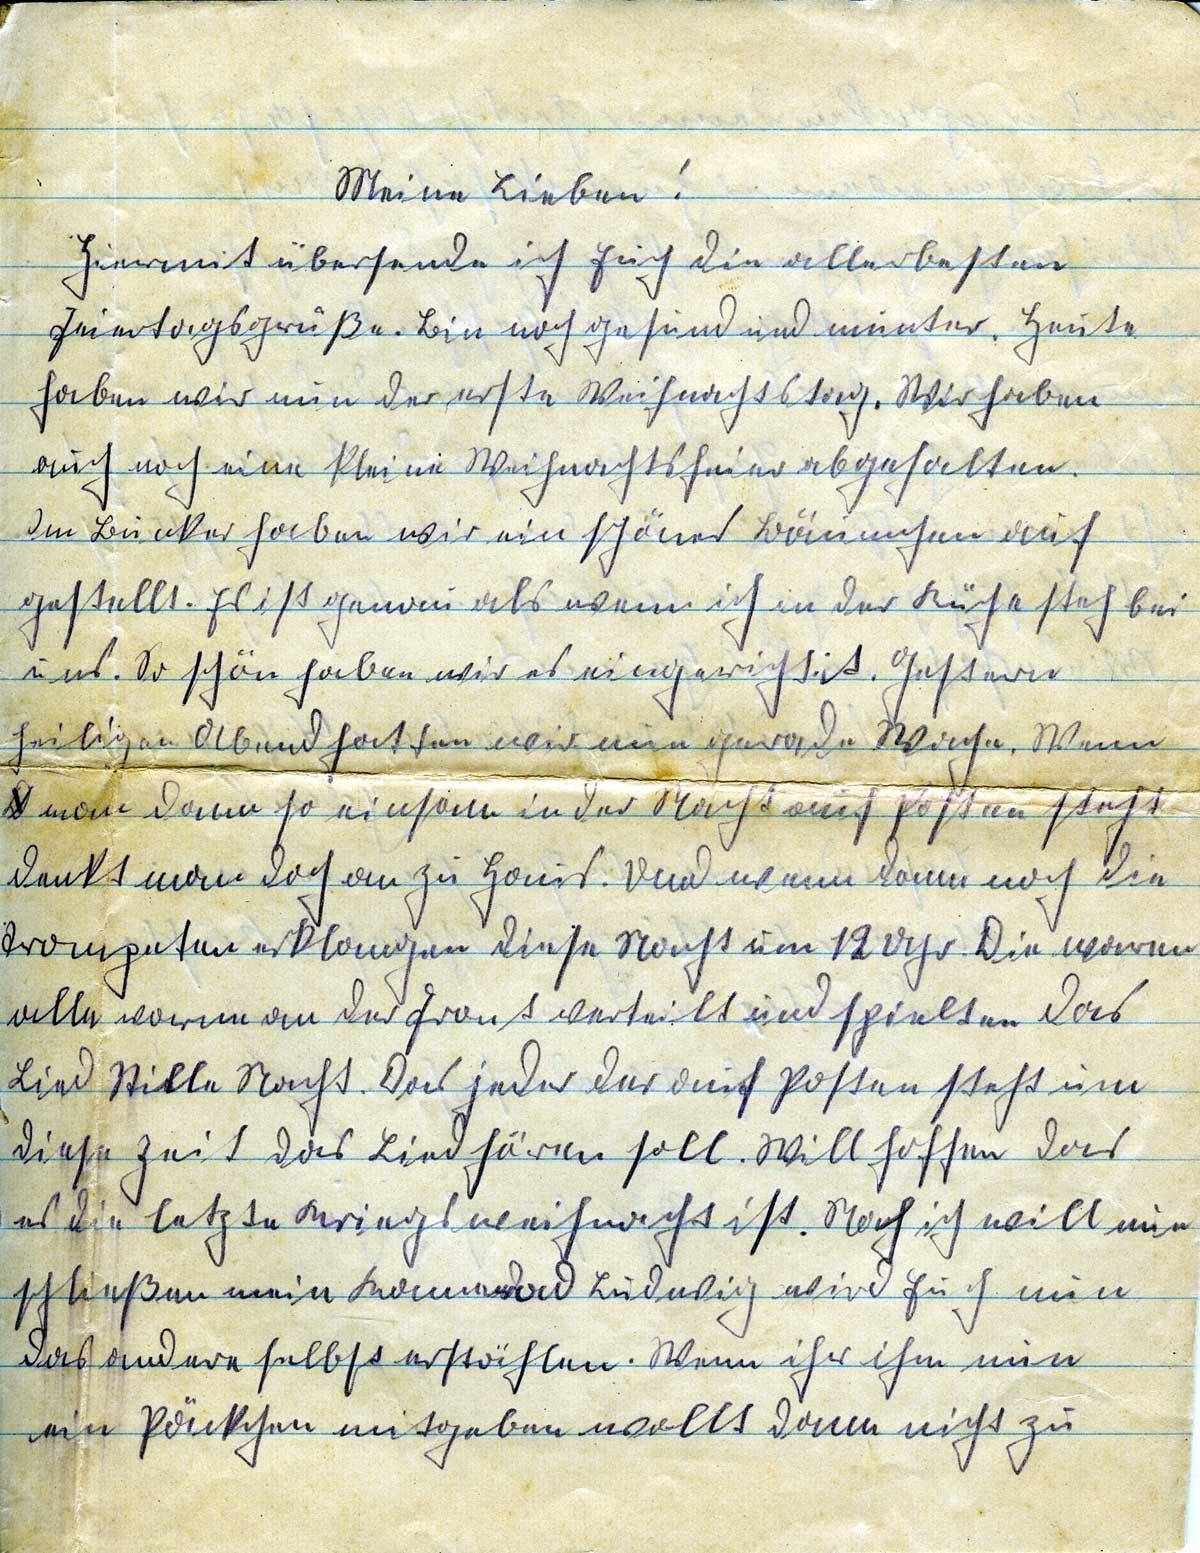 Meine Lieben!
Hiermit übersende ich Euch die allerbesten
Feiertagsgrüße. Bin noch gesund und munter. Heute
haben wir nun der erste Weihnachtstag. Wir haben
auch noch eine kleine Weihnachtsfeier abgehalten.
Im Bunker haben wir ein schönes Bäumchen auf
gestellt. Es ist genau als wenn ich in der Küche steh bei
uns. So schön haben wir es eingerichtet. Gestern
heiligen Abend hatten wir nun gerade Wache. Wenn
man dann so einsam in der Nacht auf Posten steht
denkt man doch an zu Haus. Und wenn dann noch die
Trompeten erklangen diese Nacht um 12 Uhr. Die waren
alle vorne an der Front verteilt und spielten das
Lied Stille Nacht. Das jeder der auf Posten steht um
diese Zeit das Lied hören soll. Will hoffen das
es die letzte Kriegsweihnacht ist. Noch ich will nun
schließen mein Kammerad Ludwig wird Euch nun
das andere selbst erzählen. Wenn ihr ihm nun
ein Päckchen mitgeben wollt dann nicht zu